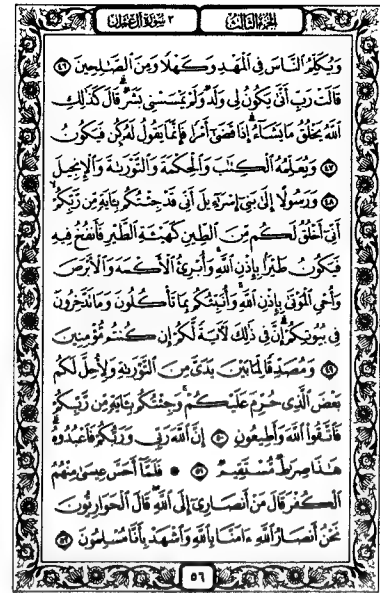 الجزء الثالث ٣ سورة آل عمران
وَيُكَلِّمُ ٱلنَّاسَ فِى ٱلْمَهْدِ وَكَهْلًا وَمِنَ ٱلصَّٰلِحِينَ ٤٦
قَالَتْ رَبِّ أَنَّىٰ يَكُونُ لِى وَلَدٌ وَلَمْ يَمْسَسْنِى بَشَرٌ قَالَ كَذَٰلِكِ
ٱللَّهُ يَخْلُقُ مَا يَشَآءُ إِذَا قَضَىٰٓ أَمْرًا فَإِنَّمَا يَقُولُ لَهُۥ كُن فَيَكُونُ
٤٧ وَيُعَلِّمُهُ ٱلْكِتَٰبَ وَٱلْحِكْمَةَ وَٱلتَّوْرَىٰةَ وَٱلْإِنجِيلَ
٤٨ وَرَسُولًا إِلَىٰ بَنِىٓ إِسْرَٰٓءِيلَ أَنِّى قَدْ جِئْتُكُم بِـَٔايَةٍ مِّن رَّبِّكُمْ
أَنِّىٓ أَخْلُقُ لَكُم مِّنَ ٱلطِّينِ كَهَيْـَٔةِ ٱلطَّيْرِ فَأَنفُخُ فِيهِ
فَيَكُونُ طَيْرًۢا بِإِذْنِ ٱللَّهِ وَأُبْرِئُ ٱلْأَكْمَهَ وَٱلْأَبْرَصَ
وَأُحْىِ ٱلْمَوْتَىٰ بِإِذْنِ ٱللَّهِ وَأُنَبِّئُكُم بِمَا تَأْكُلُونَ وَمَا تَدَّخِرُونَ
فِى بُيُوتِكُمْ إِنَّ فِى ذَٰلِكَ لَـَٔايَةً لَّكُمْ إِن كُنتُم مُّؤْمِنِينَ
٤٩ وَمُصَدِّقًا لِّمَا بَيْنَ يَدَىَّ مِنَ ٱلتَّوْرَىٰةِ وَلِأُحِلَّ لَكُم
بَعْضَ ٱلَّذِى حُرِّمَ عَلَيْكُمْ وَجِئْتُكُم بِـَٔايَةٍ مِّن رَّبِّكُمْ
فَٱتَّقُوا۟ ٱللَّهَ وَأَطِيعُونِ ٥٠ إِنَّ ٱللَّهَ رَبِّى وَرَبُّكُمْ فَٱعْبُدُوهُ
هَٰذَا صِرَٰطٌ مُّسْتَقِيمٌ ٥١ ۞ فَلَمَّآ أَحَسَّ عِيسَىٰ مِنْهُمُ
ٱلْكُفْرَ قَالَ مَنْ أَنصَارِىٓ إِلَى ٱللَّهِ قَالَ ٱلْحَوَارِيُّونَ
نَحْنُ أَنصَارُ ٱللَّهِ ءَامَنَّا بِٱللَّهِ وَٱشْهَدْ بِأَنَّا مُسْلِمُونَ ٥٢
٥٦